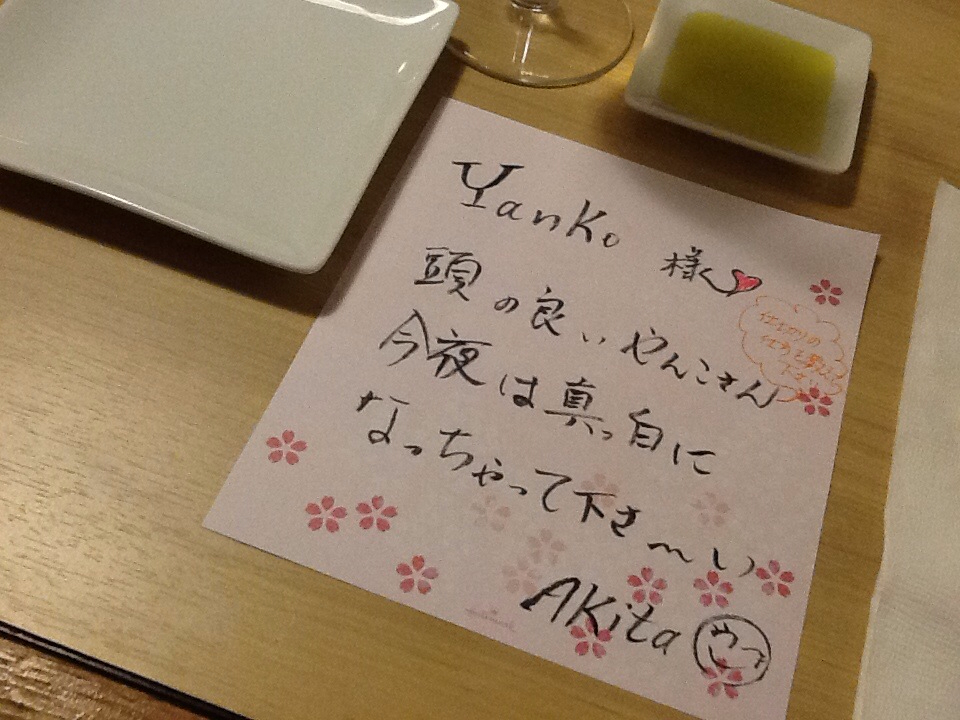 Yanko 様
頭の良いやんこさん
今夜は真っ白に
なっちゃって下さ〜い
AKita
仕切りの